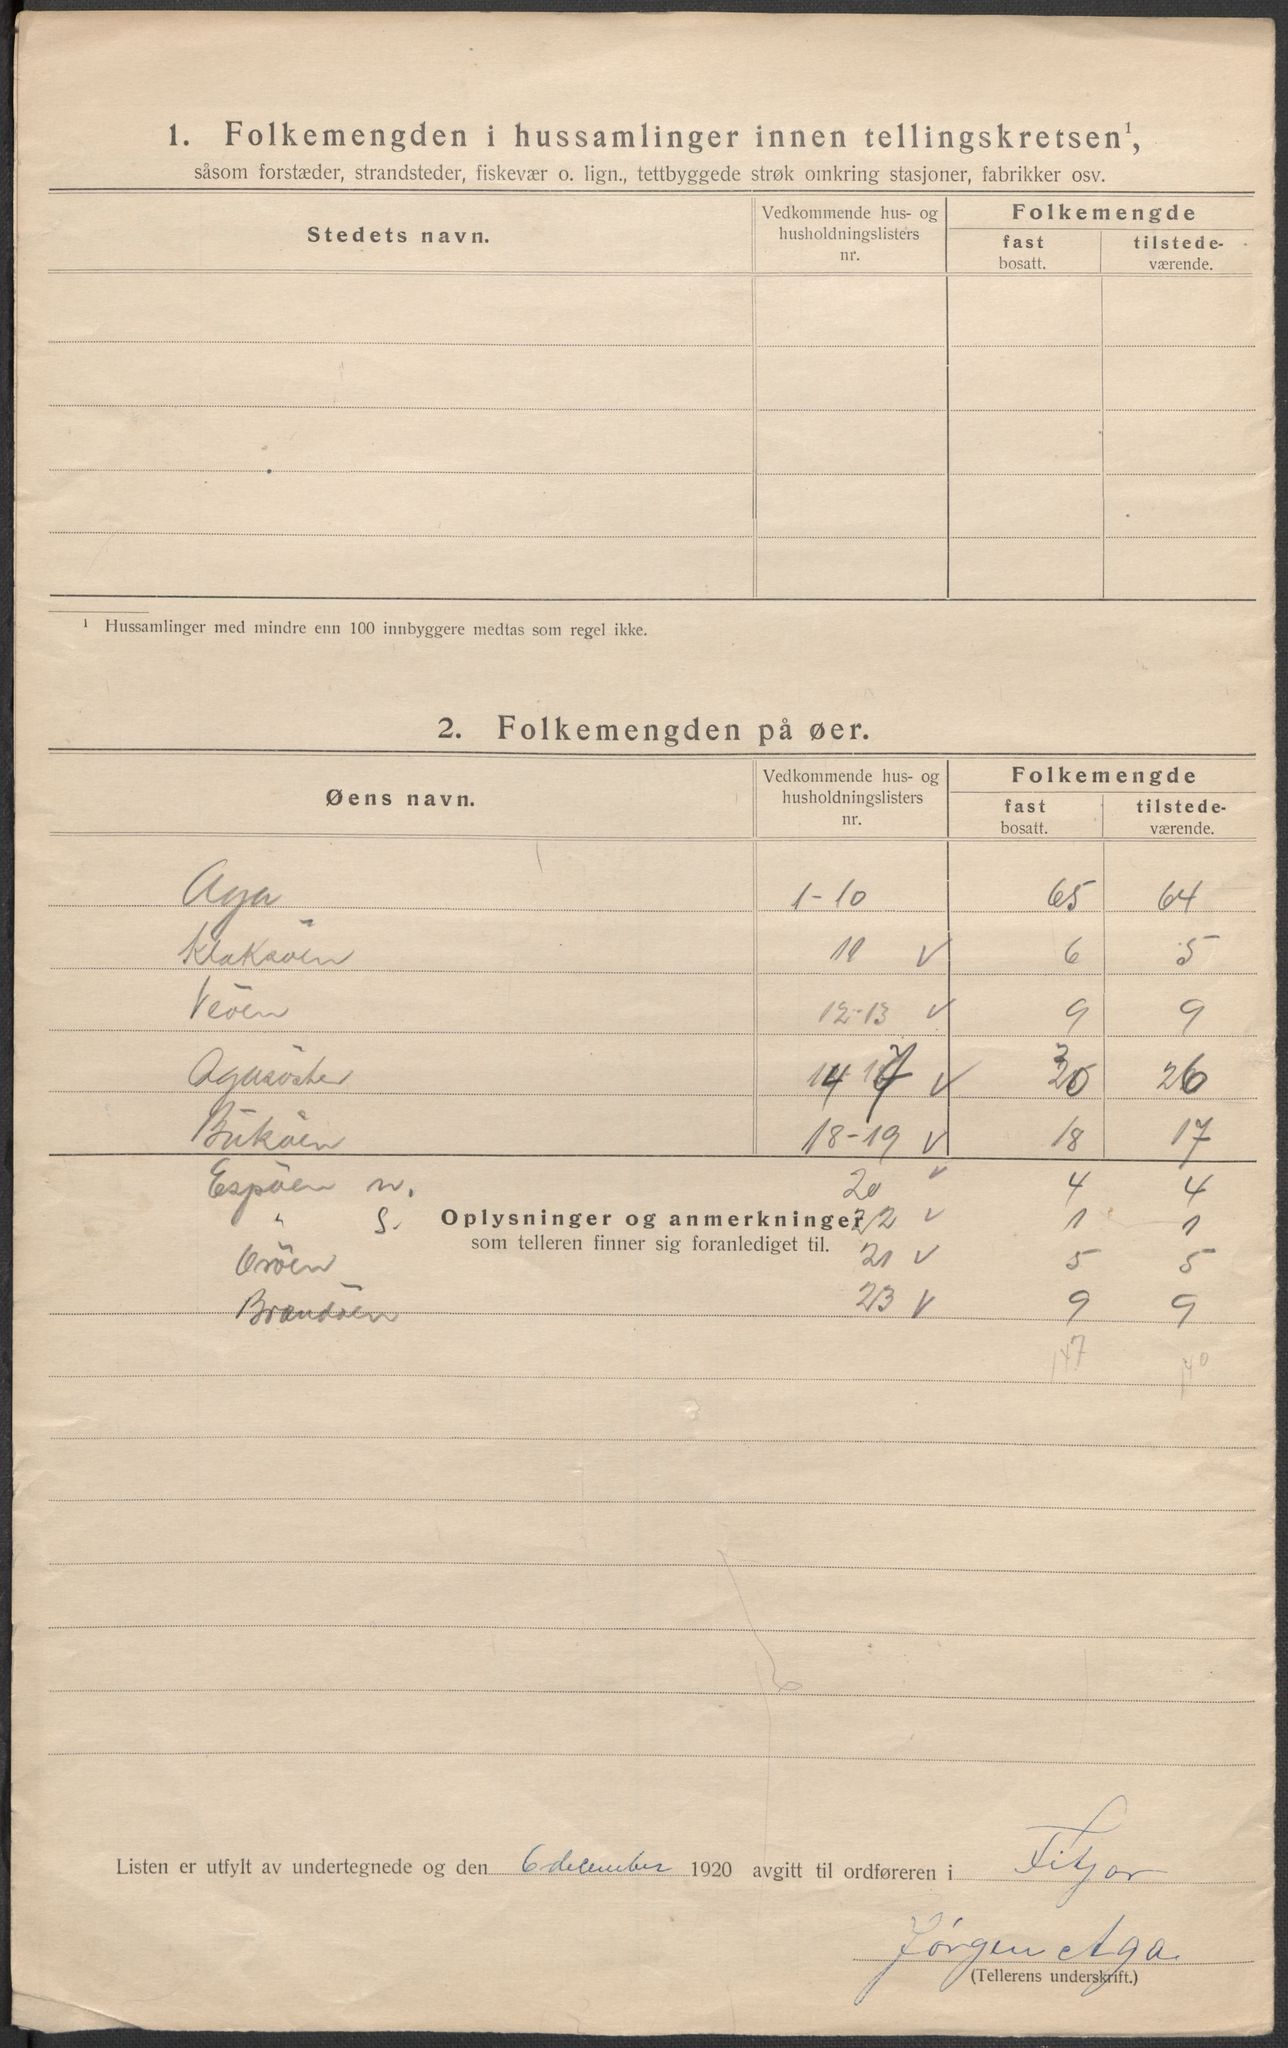 1. Folkemengden i hussamlinger innen tellingskretsen¹,
såsom forstæder, strandsteder, fiskevær o. lign., tettbyggede strøk omkring stasjoner, fabrikker osv.
Stedets navn. Vedkommende hus- og husholdningslisters nr. Folkemengde
fast bosatt. tilstede-værende.
¹ Hussamlinger med mindre enn 100 innbyggere medtas som regel ikke.
2. Folkemengden på øer.
Øens navn. Vedkommende hus- og husholdningslisters nr. Folkemengde
fast bosatt. tilstede-værende.
Aga 1-10 65 64
Klaksöen 11 V 6 5
Veöen 12-13 V 9 9
Agasöster 14-17 V 30 26
Buköen 18-19 V 18 17
Espöen n. 20 V 4 4
" S. 22 V 1 1
Oplysninger og anmerkninger
som telleren finner sig foranlediget til.
Oröen 21 V 5 5
Brandöen 23 V 9 9
147 140
Listen er utfylt av undertegnede og den 6 december 1920 avgitt til ordføreren i Fitjar
Jørgen Aga
(Tellerens underskrift.)